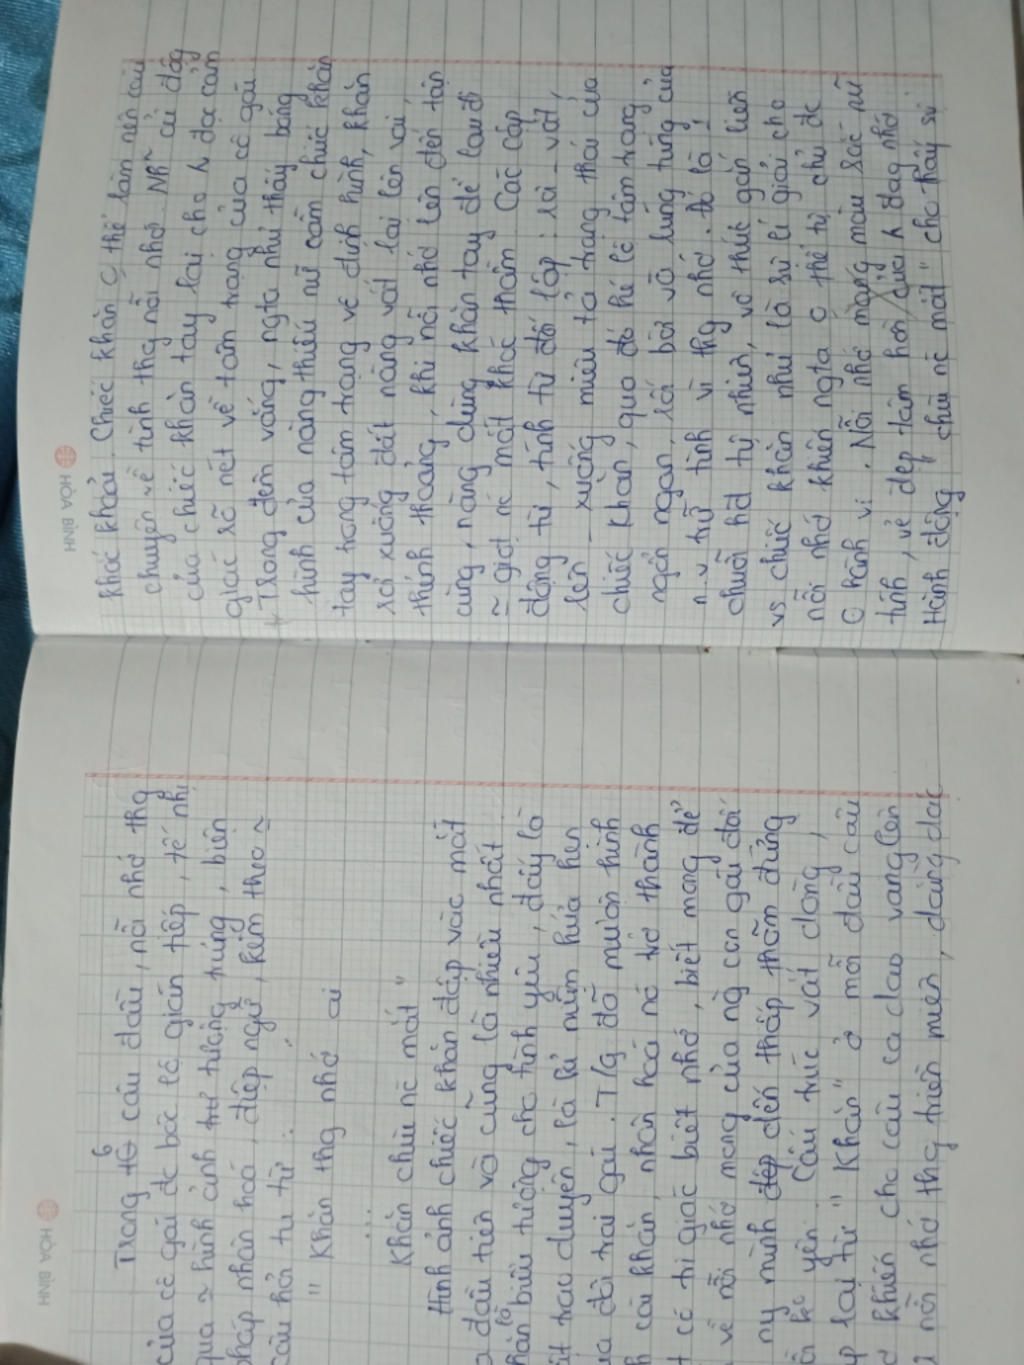 HÒA BÌNH
Trong 6 câu đầu, nỗi nhớ thg
của cô gái đc bộc lộ gián tiếp, tế nhị
qua ~ hình ảnh tượng trưng, biện
pháp nhân hoá, điệp ngữ, kèm theo ~
câu hỏi tu từ:
" Khăn thg nhớ ai
...
Khăn chùi nc mắt "
Hình ảnh chiếc khăn đập vào mắt
đầu tiên và cũng là nhiều nhất.
khăn là biểu tượng cho tình yêu, đây là
vật trao duyên, là kỉ niệm hứa hẹn
của đôi trai gái. T/g đã mượn hình
cái khăn, nhân hoá nó trở thành
có tri giác biết nhớ, biết mong để
về nỗi nhớ mong của ng con gái đối
ny mình đến thấp thỏm đứng
yên. Cấu trúc vắt dòng,
lại từ " Khăn" ở mỗi đầu câu
khiến cho câu ca dao vang lên
nỗi nhớ thg triền miên, dằng dặc
HÒA BÌNH
khắc khoải. Chiếc khăn C thể làm nên câu
chuyện về tình thg nỗi nhớ. Nhg cử động
của chiếc khăn tay lại cho h đọc cảm
giác rõ nét về tâm trạng của cô gái
Trong đêm vắng, ngta như thấy bóng
hình của nàng thiếu nữ cầm chiếc khăn
tay trong tâm trạng vô định hình, khăn
rơi xuống đất nàng vắt lại lên vai,
thỉnh thoảng, khi nỗi nhớ lên đến tận
cùng, nàng dùng khăn tay để lau đi
~ giọt nc mắt khóc thầm. Các cặp
động từ, tính từ đối lập: rơi - vắt,
lên - xuống miêu tả trạng thái của
chiếc khăn, qua đó hé lộ tâm trạng
ngổn ngang, rối bời và lúng túng của
n.v trữ tình vì thg nhớ. Đó là 1
chuỗi hđ tự nhiên, vô thức gắn liền
vs chiếc khăn như là sự lí giải cho
nỗi nhớ khiến ngta o thể tự chủ đc
O hành vi. Nỗi nhớ mang màu sắc nữ
tính, vẻ đẹp tâm hồn của h đag nhớ
Hành động " chùi nc mắt" cho thấy sự